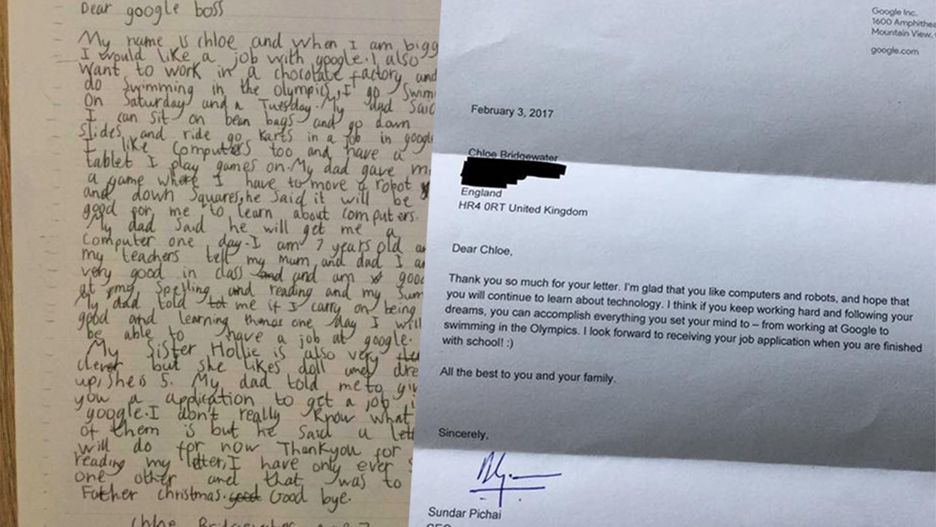 Dear google boss
My name is chloe and when I am bigg
I would like a job with google. I also
want to work in a chocolate factory and
do swimming in the olympics, I go swim
On Saturday and a Tuesday. My dad said
I can sit on bean bags and go down
slides and ride go karts in a job in google
I like computers too and have a
tablet I play games on. My dad gave m
a game where I have to move a robot
and down squares, he said it will be
good for me to learn about computers.
My dad said he will get me a
computer one day. I am 7 years old a
my teachers tell my mum and dad I a
very good in class and and am good
at my spelling and reading and my sum
My dad told me if I carry on being
good and learning one day I will
be able to have a job at google.
My sister Hollie is also very
clever but she likes doll and dre
up, she is 5. My dad told me to giv
you a application to get a job i
google. I don't really know what
of them is but he said a lett
will do for now Thankyou for
reading my letter, I have only ever s
one other and that was to
Father christmas. good Good bye.
Chloe Bridgewater
Google Inc.
1600 Amphithea
Mountain View,
google.com
February 3, 2017
Chloe Bridgewater
England
HR4 0RT United Kingdom
Dear Chloe,
Thank you so much for your letter. I'm glad that you like computers and robots, and hope that
you will continue to learn about technology. I think if you keep working hard and following your
dreams, you can accomplish everything you set your mind to – from working at Google to
swimming in the Olympics. I look forward to receiving your job application when you are finished
with school! :)
All the best to you and your family.
Sincerely,
Sundar Pichai
CEO